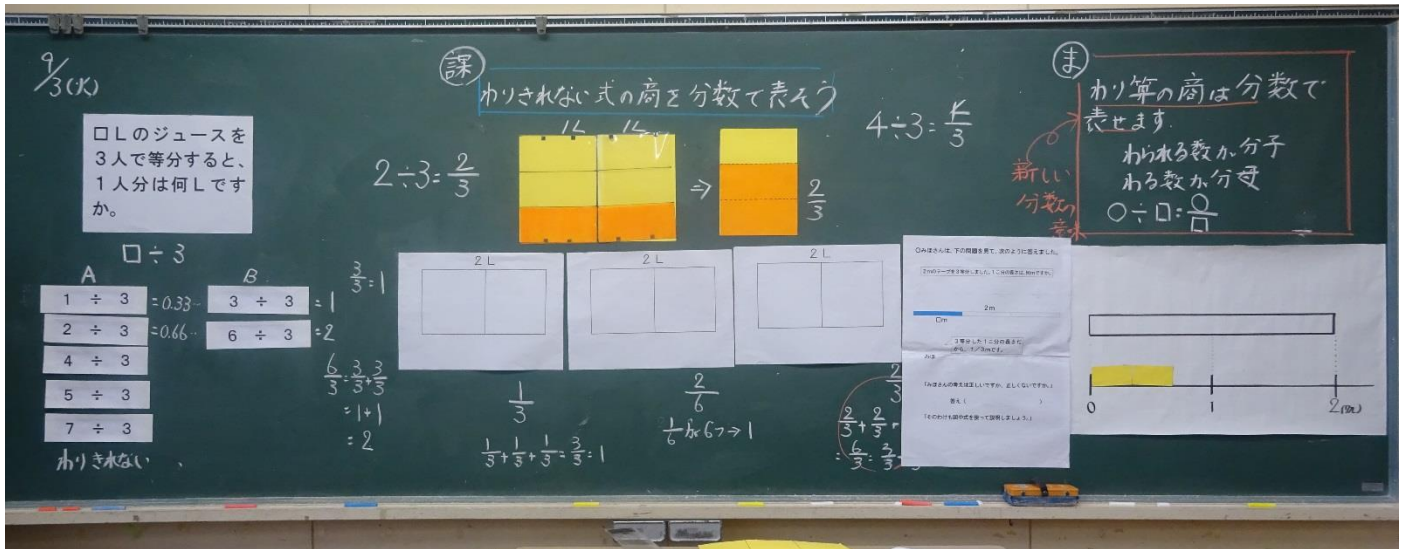 9/3(火)
□Lのジュースを
3人で等分すると、
1人分は何Lです
か。
□÷3
A
1 ÷ 3 =0.33…
2 ÷ 3 =0.66…
4 ÷ 3
5 ÷ 3
7 ÷ 3
わりきれない
B
3 ÷ 3 =1
6 ÷ 3 =2
3/3=1
6/3=3/3+3/3
=1+1
=2
課
わりきれない式の商を分数で表そう
2÷3=2/3
1L 1L
⇒
2/3
4÷3=4/3
2L
1/3
1/3+1/3+1/3=3/3=1
2L
2/6
1/6が6つ→1
2L
2/3
2/3+2/3+
=6/3=3/3
○みほさんは、下の問題を見て、次のように答えました。
2mのテープを3等分しました。1こ分の長さは、何mですか。
2m
□m
3等分した1こ分の長さだ
から、1/3mです。
みほ
「みほさんの考えは正しいですか、正しくないですか。」
答え( )
「そのわけも図や式を使って説明しましょう。」
ま
わり算の商は分数で
表せます.
わられる数が分子
わる数が分母
○÷□=○/□
新しい
分数の
意味
0 1 2(m)